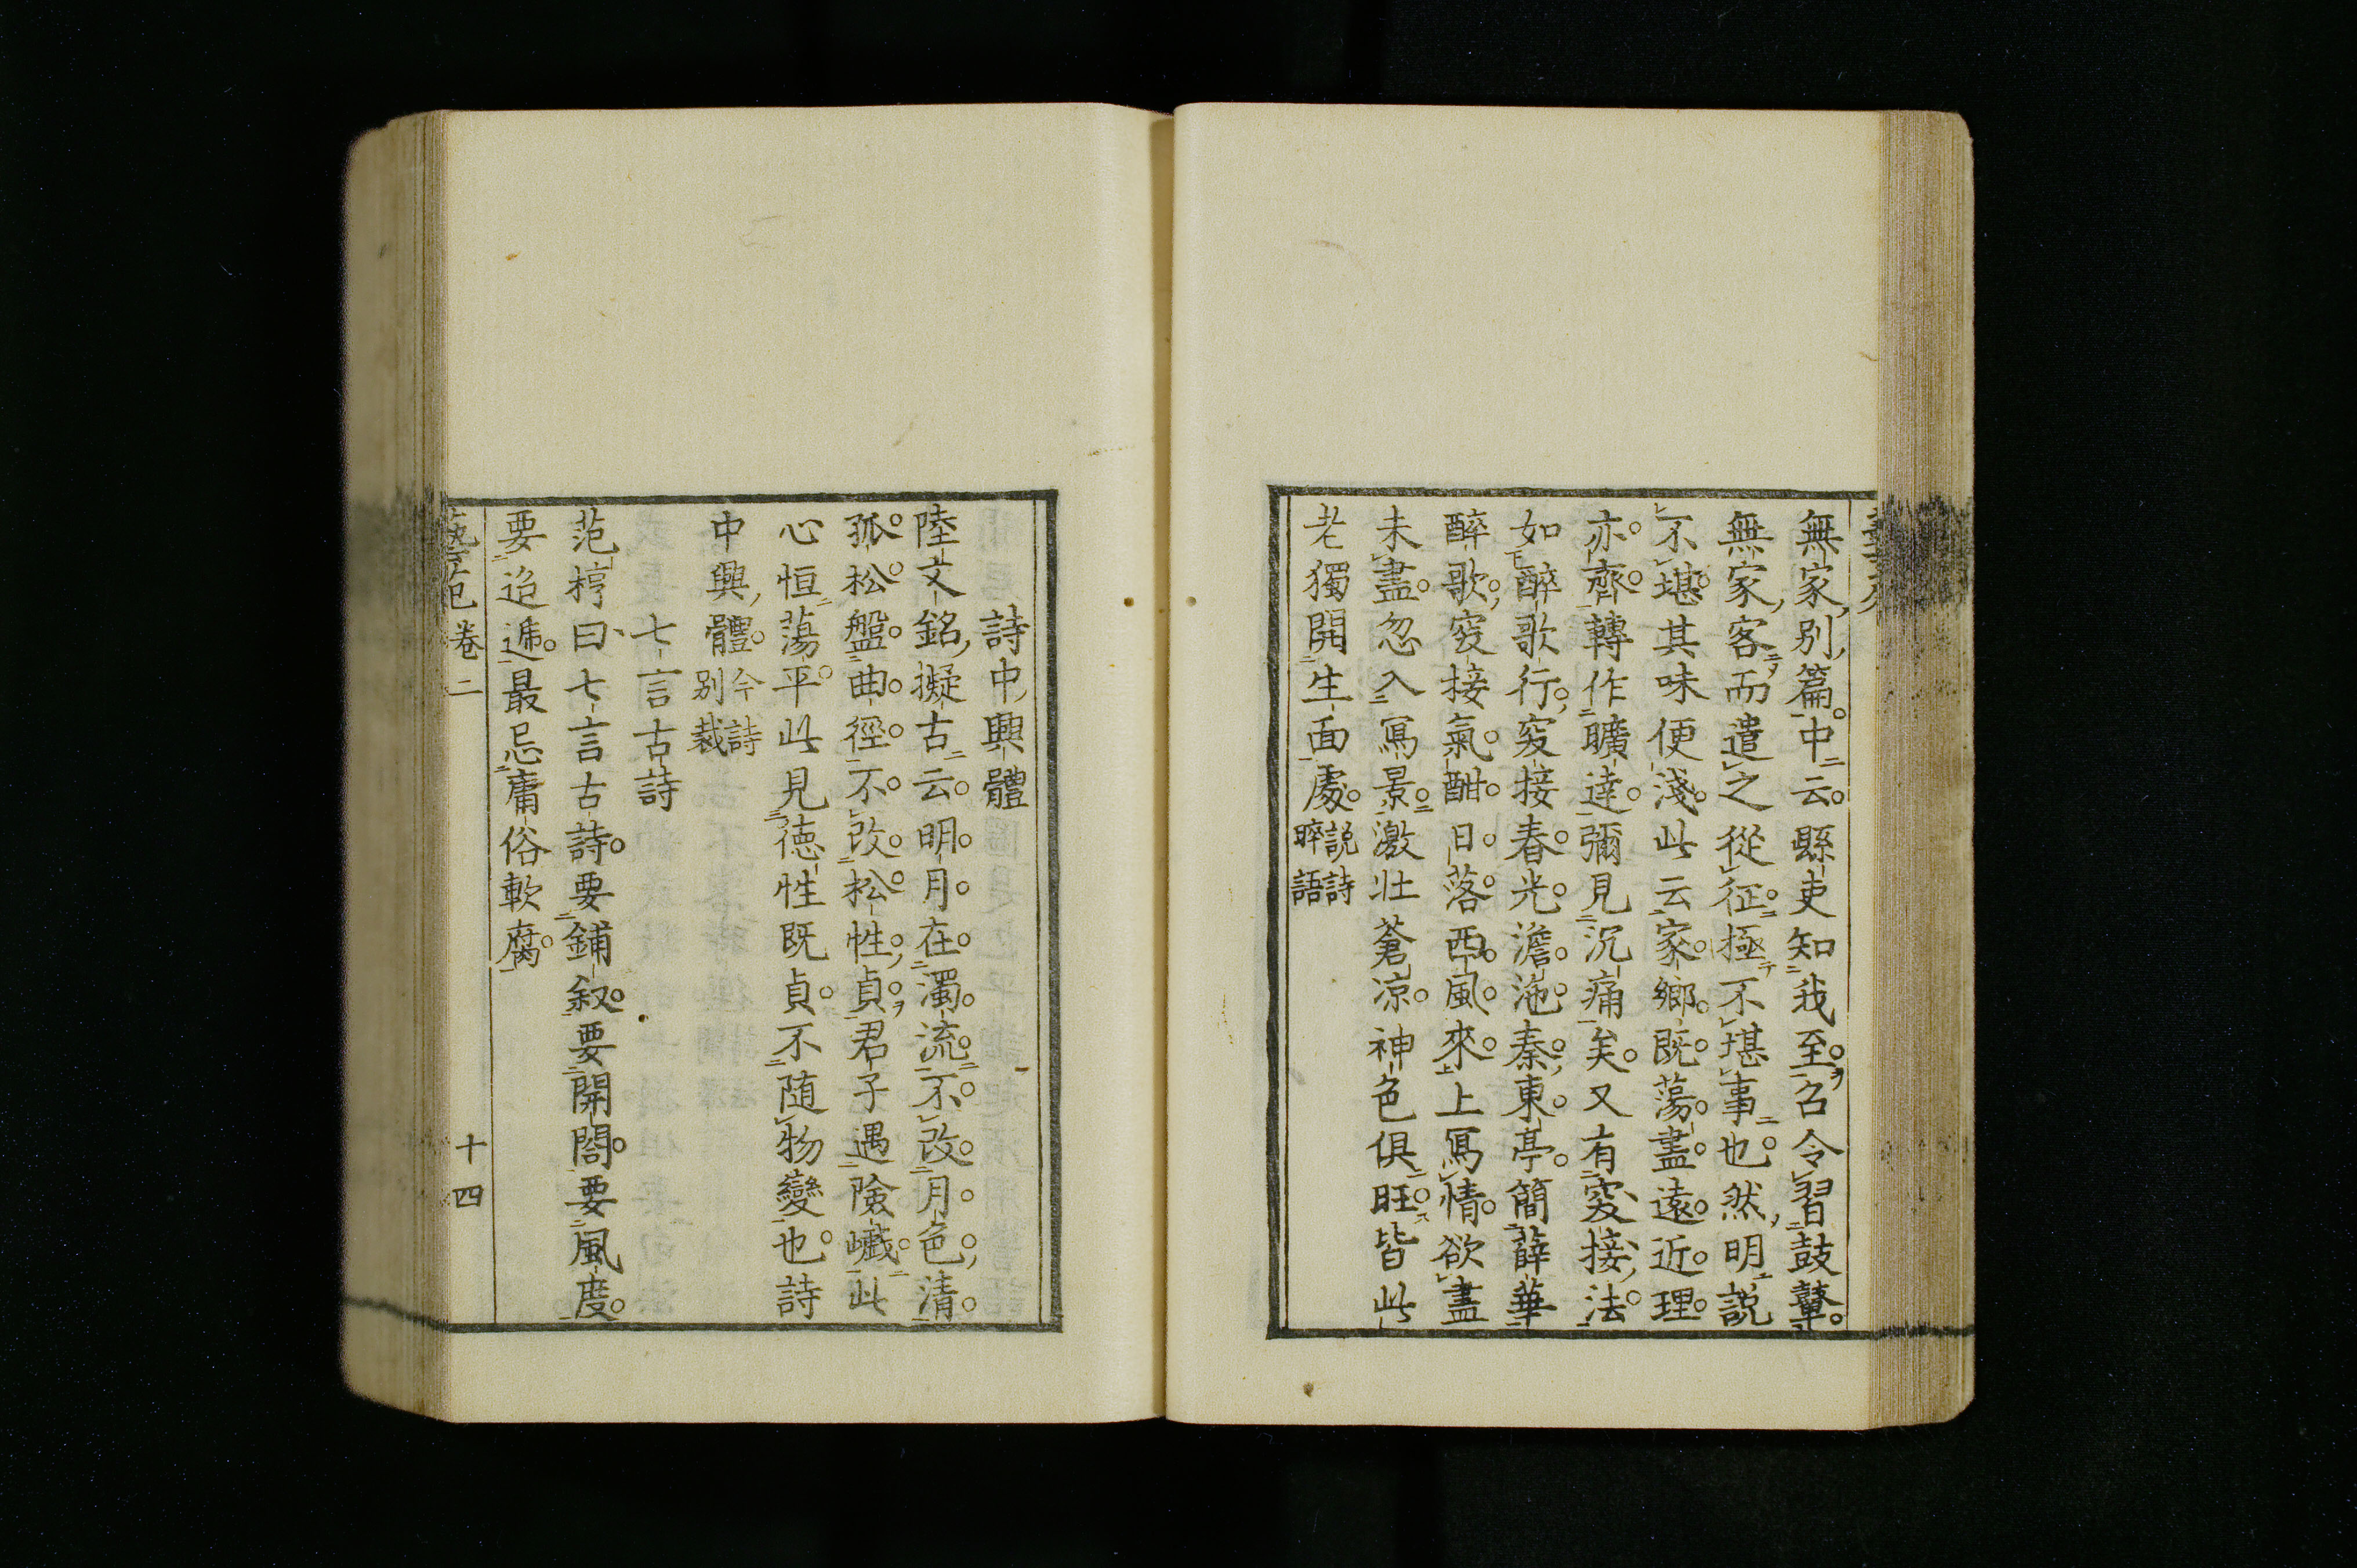 無家別篇中云縣吏知我至召令習鼓鞞
無家客而遣之從征極不堪事也然明說
不堪其味便淺此云家鄉既蕩盡遠近理
亦齊轉作曠達彌見沉痛矣又有突接法
如醉歌行突接春光澹沲秦東亭簡薛華
醉歌突接氣酣日落西風來上寫情欲盡
未盡忽入寫景激壯蒼凉神色俱旺皆此
老獨開生面處
説詩
晬語
詩中興體
陸文銘擬古云明月在濁流不改月色清
孤松盤曲徑不改松性貞君子遇險巇此
心恒蕩平此見德性既貞不隨物變也詩
中興體
今詩
別裁
七言古詩
范梈曰七言古詩要鋪叙要開閤要風度
要迢遞最忌庸俗軟腐
藝苑 卷二 十四